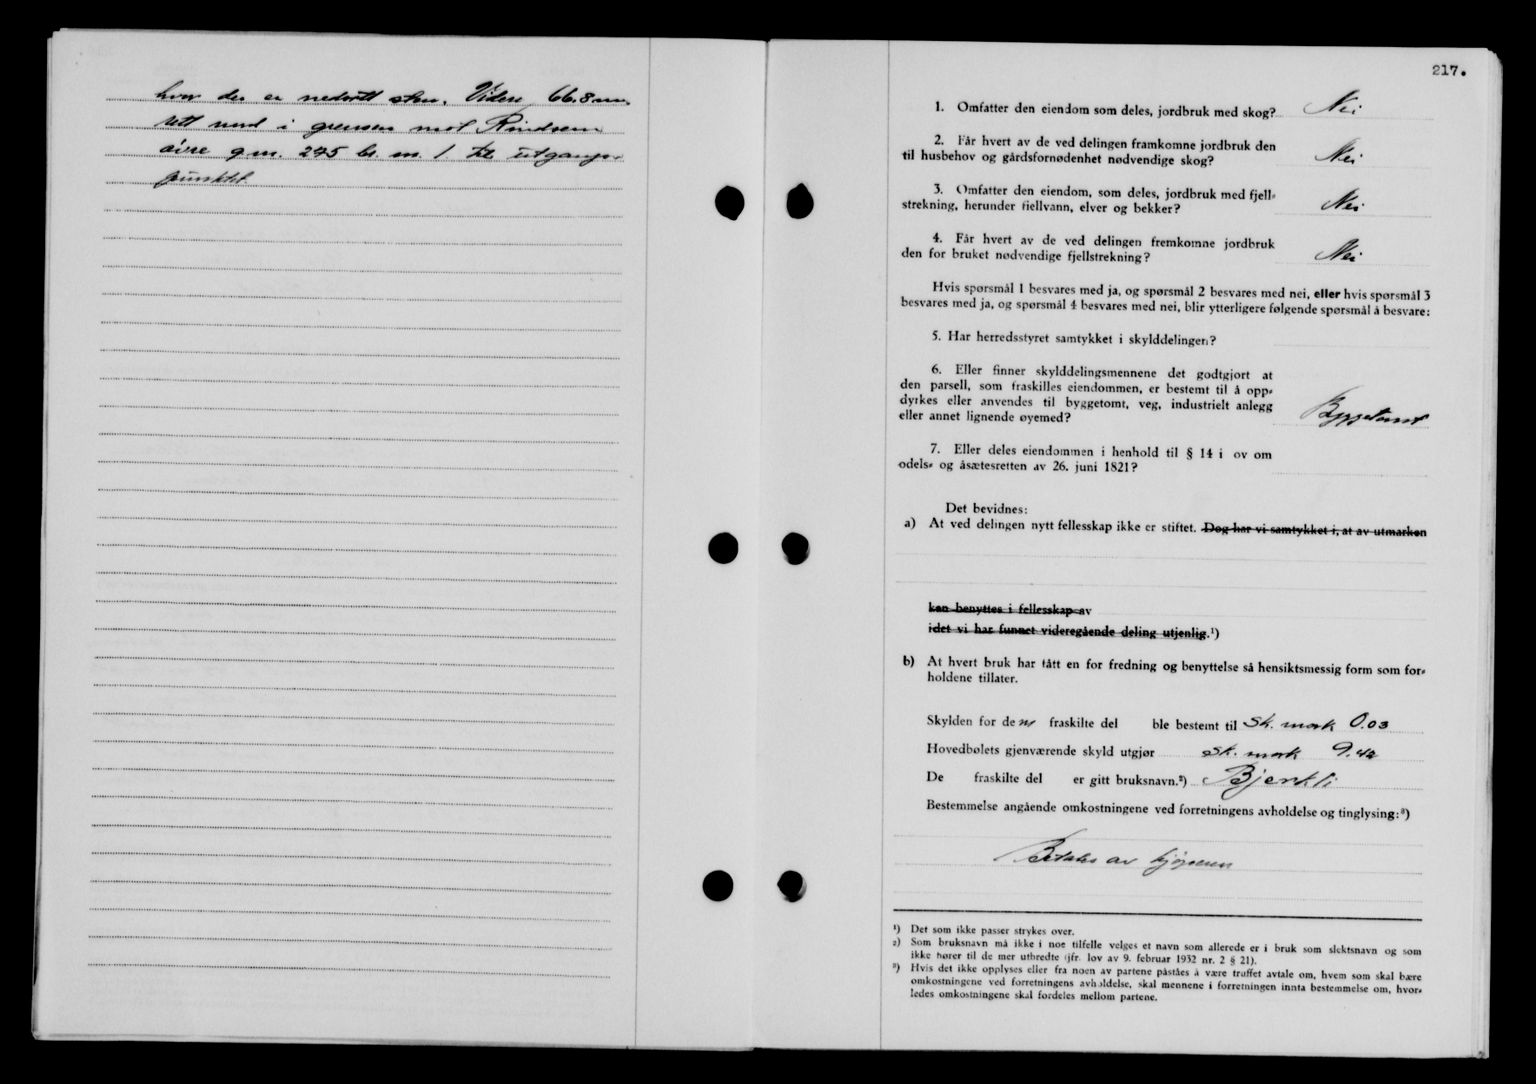 hvor der er nedsatt sten. Videre 66.8 m.
rett nord i grensen mot Rindsem
øvre g.nr. 275 br. nr. 1 til utgangs-
punktet.
217.
1. Omfatter den eiendom som deles, jordbruk med skog? Nei
2. Får hvert av de ved delingen framkomne jordbruk den
til husbehov og gårdsfornødenhet nødvendige skog? Nei
3. Omfatter den eiendom, som deles, jordbruk med fjell-
strekning, herunder fjellvann, elver og bekker? Nei
4. Får hvert av de ved delingen fremkomne jordbruk
den for bruket nødvendige fjellstrekning? Nei
Hvis spørsmål 1 besvares med ja, og spørsmål 2 besvares med nei, eller hvis spørsmål 3
besvares med ja, og spørsmål 4 besvares med nei, blir ytterligere følgende spørsmål å besvare:
5. Har herredsstyret samtykket i skylddelingen?
6. Eller finner skylddelingsmennene det godtgjort at
den parsell, som fraskilles eiendommen, er bestemt til å opp-
dyrkes eller anvendes til byggetomt, veg, industrielt anlegg
eller annet lignende øyemed? Byggetomt
7. Eller deles eiendommen i henhold til § 14 i lov om
odels- og åsætesretten av 26. juni 1821?
Det bevidnes:
a) At ved delingen nytt fellesskap ikke er stiftet. Dog har vi samtykket i, at av utmarken
kan benyttes i fellesskap av
idet vi har funnet videregående deling utjenlig.¹)
b) At hvert bruk har fått en for fredning og benyttelse så hensiktsmessig form som for-
holdene tillater.
Skylden for den fraskilte del ble bestemt til Sk. mark 0.03
Hovedbølets gjenværende skyld utgjør Sk. mark 9.42
De fraskilte del er gitt bruksnavn.²) Bjerkli
Bestemmelse angående omkostningene ved forretningens avholdelse og tinglysing:³)
Betales av kjøperen
¹) Det som ikke passer strykes over.
²) Som bruksnavn må ikke i noe tilfelle velges et navn som allerede er i bruk som slektsnavn og som
ikke hører til de mer utbredte (jfr. lov av 9. februar 1932 nr. 2 § 21).
³) Hvis det ikke opplyses eller fra noen av partene påståes å være truffet avtale om, hvem som skal bære
omkostningene ved forretningens avholdelse, skal mennene i forretningen innta bestemmelse om, hvor-
ledes omkostningene skal fordeles mellom partene.